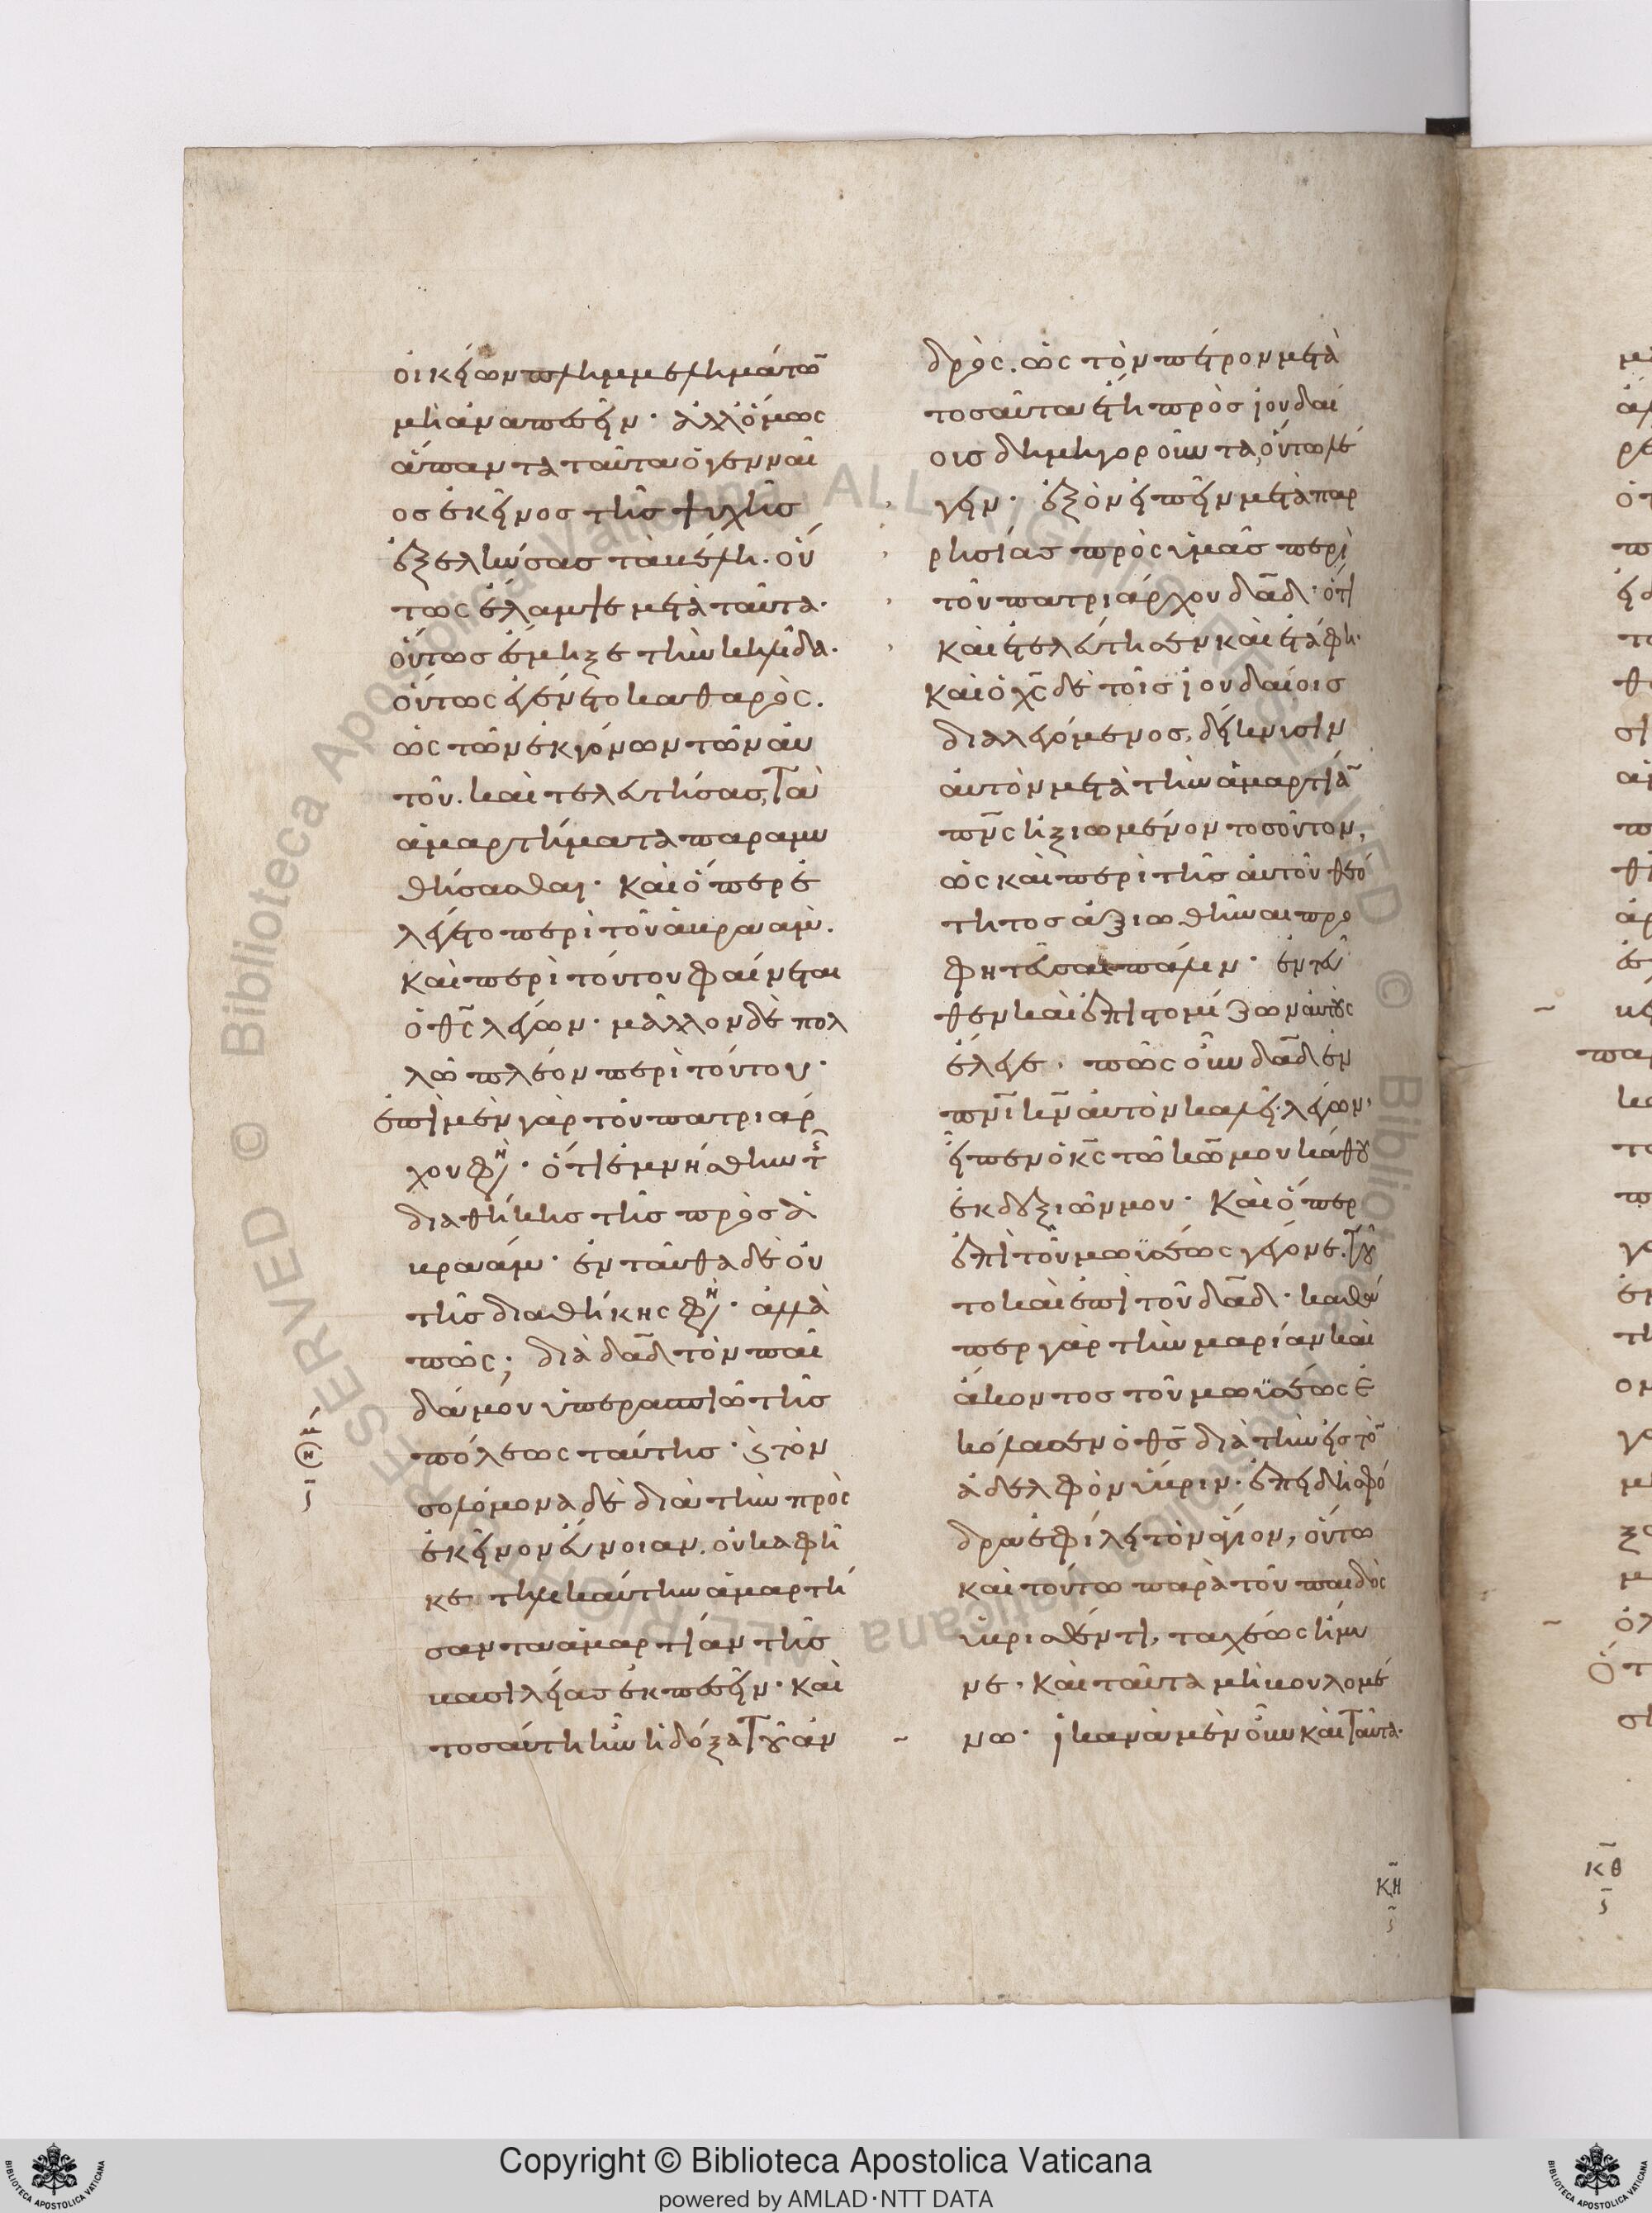 οἰκείων πλημμελημάτω̃
μὴ ἀναπεσεῖν· ἀλλ' ὅμως
ἅπαντα ταῦτα ὁ γενναῖ
ος ἐκεῖνος τῆς ψυχῆς
ἐξελκύσας τὰ βέλη. οὕ
τως ἔλαμψε μετὰ ταῦτα·
οὕτως ἔσμηξε τὴν κηλῖδα·
οὕτως ἐγένετο καθαρὸς.
ὡς τῶν ἐκγόνων τῶν αὐ
τοῦ. καὶ τελευτήσας, τὰ
ἁμαρτήματα παραμυ
θήσασθαι· καὶ ὅπερ ἐ
λέγετο περὶ τοῦ ἀβραὰμ.
καὶ περὶ τούτου φαίνεται
ὁ θς̃ λέγων· μᾶλλον δὲ πολ
λῶ πλέον περὶ τούτου·
ἐπὶ μὲν γὰρ τοῦ πατριάρ
χου φη· ὅτι ἐμνήσθην τῆς
διαθήκης τῆς πρὸς ἀ
βραάμ· ἐνταῦθα δὲ οὐ
τῆς διαθήκης φη· ἀλλὰ
πῶς; διὰ δᾱδ τὸν παῖ
δά μου ὑπερασπιῶ τῆς
πόλεως ταύτης· ϗ τὸν
σολόμονα δὲ διὰ τὴν πρὸς
ἐκεῖνον εὔνοιαν. οὐκ ἀφῆ
κε τηλικαύτην ἁμαρτή
σαντα ἁμαρτίαν τῆς
βασιλείας ἐκπεσεῖν· καὶ
τοσαύτη ἦν ἡ δόξα τοῦ ἀν
δρὸς. ὡς τὸν πέτρον μετὰ
τοσαῦτα ἔτη πρὸς ἰουδαί
οις δημηγοροῦντα, οὕτω λέ
γειν· ἐξὸν εἰπεῖν μετὰ παρ
ρησίας πρὸς ὑμᾶς περὶ
τοῦ πατριάρχου δᾱδ· ὅτι
καὶ ἐτελεύτησεν καὶ ἐτάφη·
καὶ ὁ χς̃ δὲ τοῖς ἰουδαίοις
διαλεγόμενος, δείκνυσιν
αὐτὸν μετὰ τὴν ἁμαρτία̃
πνς̃ ἠξιωμένον τοσοῦτον,
ὡς καὶ περὶ τῆς αὐτοῦ θεό
τητος ἀξιωθῆναι προ
φητεῦσαι πάλιν· ἐντεῦ
θεν καὶ ἐπιστομίζων αὐτοὺς
ἔλεγε· πῶς οὖν δᾱδ ἐν
πνῑ κν̄ αὐτὸν καλεῖ· λέγων·
εἶπεν ὁ κς̄ τῶ κω̄ μου κάθου
ἐκ δεξιῶν μου· καὶ ὅπερ
ἐπὶ τοῦ μωϋσέως γέγονε. τοῦ
το καὶ ἐπὶ τοῦ δᾱδ· καθά
περ γὰρ τὴν μαρίαν καὶ
ἄκοντος τοῦ μωϋσέως ἐ
κόλασεν ὁ θς̄ διὰ τὴν εἰς τὸ̃
ἀδελφὸν ὕβριν· ἐπειδὴ σφό
δρα ἐφίλει τὸν ἅγιον, οὕτω
καὶ τούτω παρὰ τοῦ παιδὸς
ὑβρισθέντι, ταχέως ἤμυ
νε· καὶ ταῦτα μὴ βουλομέ
νω· ἱκανὰ μὲν οὖν καὶ ταῦτα·
κη̃
κθ̃
Copyright © Biblioteca Apostolica Vaticana
powered by AMLAD·NTT DATA